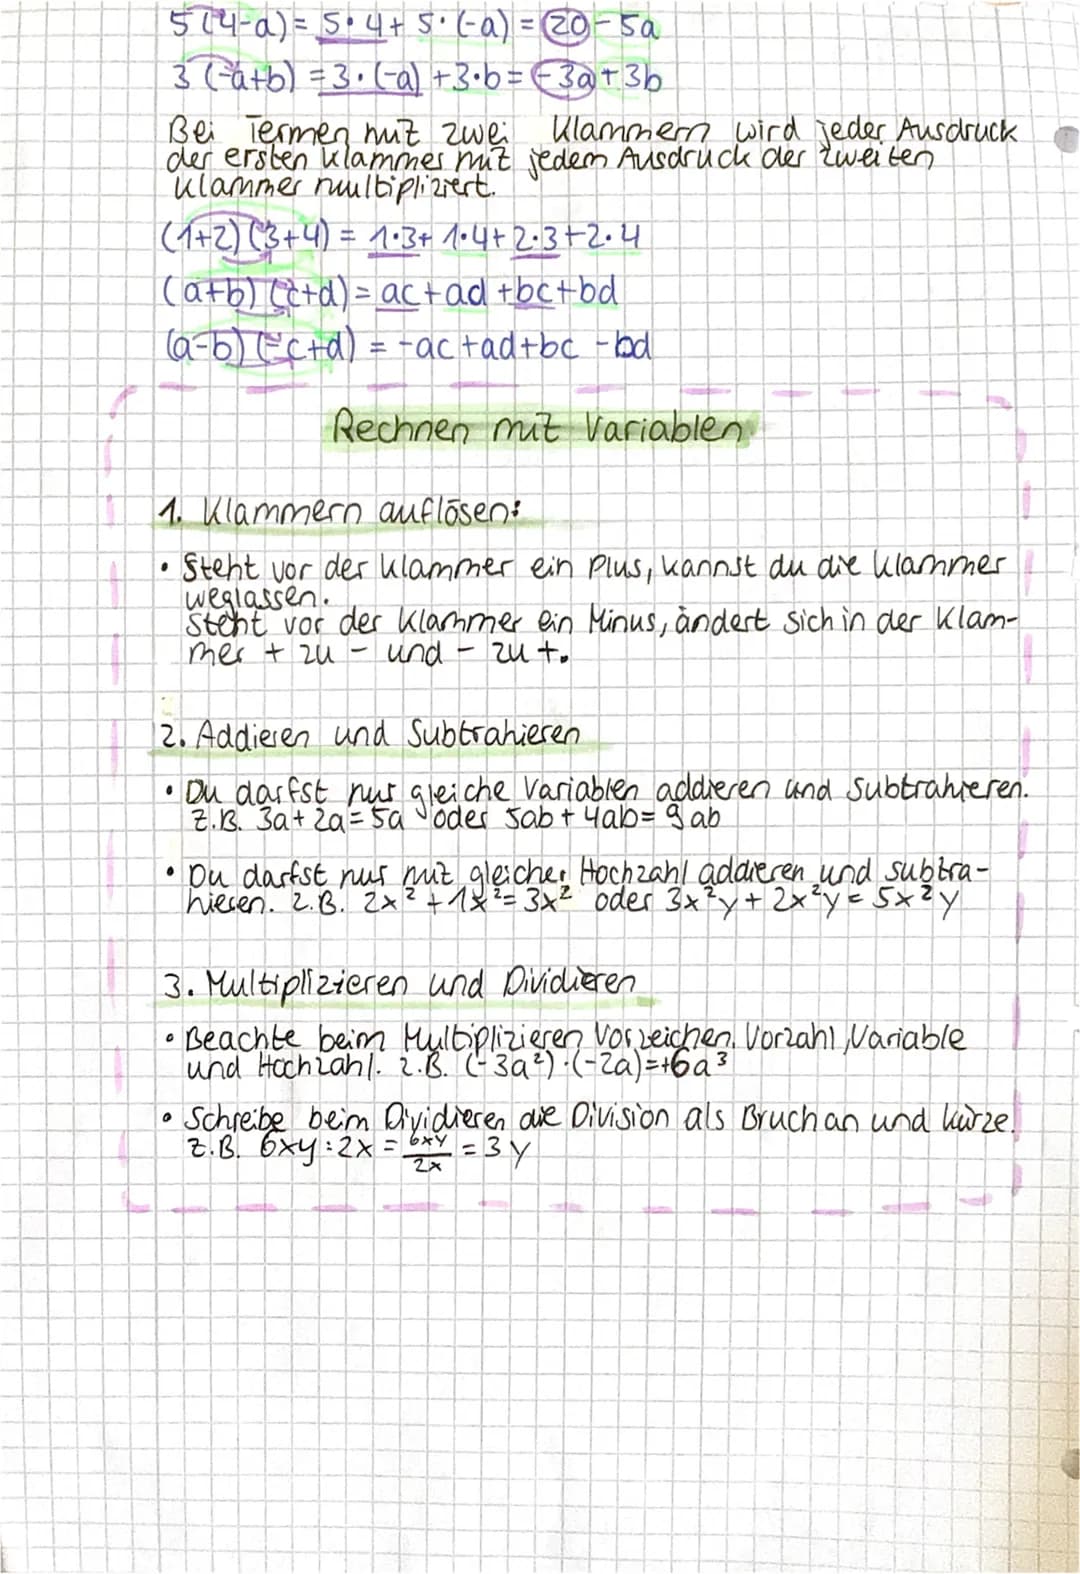 5(4-a) = 5·4 + 5·(-a) = 20 - 5a
3(-a+b) = 3·(-a) + 3·b = -3a + 3b
Bei Termen mit zwei Klammern wird jeder Ausdruck
der ersten Klammer mit jedem Ausdruck der zweiten
Klammer multipliziert.
(1+2)(3+4) = 1·3 + 1·4 + 2·3 + 2·4
(a+b)(c+d) = ac + ad + bc + bd
(a-b)(-c+d) = -ac + ad + bc - bd
Rechnen mit Variablen
1. Klammern auflösen:
• Steht vor der Klammer ein Plus, kannst du die Klammer
weglassen.
Steht vor der Klammer ein Minus, ändert sich in der Klam-
mer + zu - und - zu +.
2. Addieren und Subtrahieren
• Du darfst nur gleiche Variablen addieren und subtrahieren.
z.B. 3a + 2a = 5a oder 5ab + 4ab = 9ab
• Du darfst nur mit gleicher Hochzahl addieren und subtra-
hieren. z.B. 2x² + 1x² = 3x² oder 3x²y + 2x²y = 5x²y
3. Multiplizieren und Dividieren
• Beachte beim Multiplizieren Vorzeichen, Vorzahl, Variable
und Hochzahl. z.B. (-3a²)·(-2a) = +6a³
• Schreibe beim Dividieren die Division als Bruch an und kürze!
z.B. 6xy : 2x = 6xy/2x = 3y